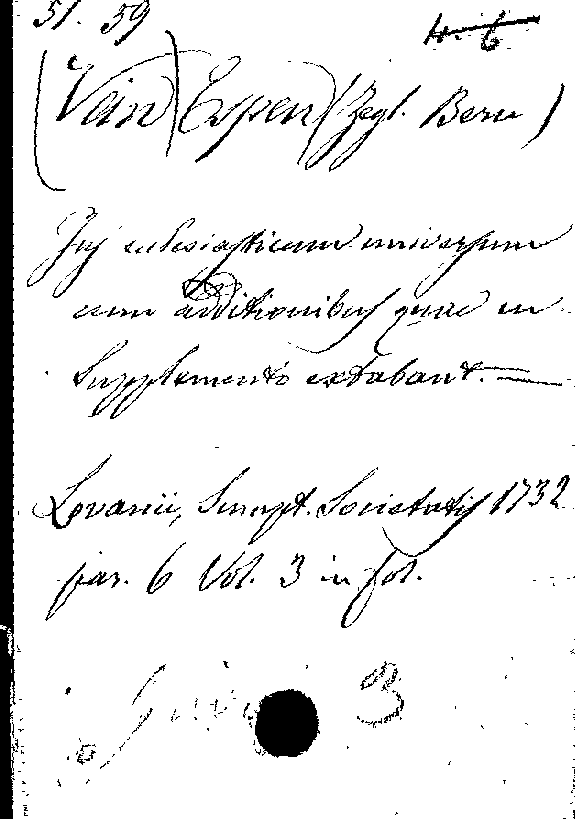 51. 59
4. 6
(Van) Espen (Zegl. Bern)
Jus ecclesiasticum universum
cum additionibus quae in
Supplemento extabant. —
Lovanii, Sumpt. Societatis 1732
par. 6 Vol. 3 in fol.
3